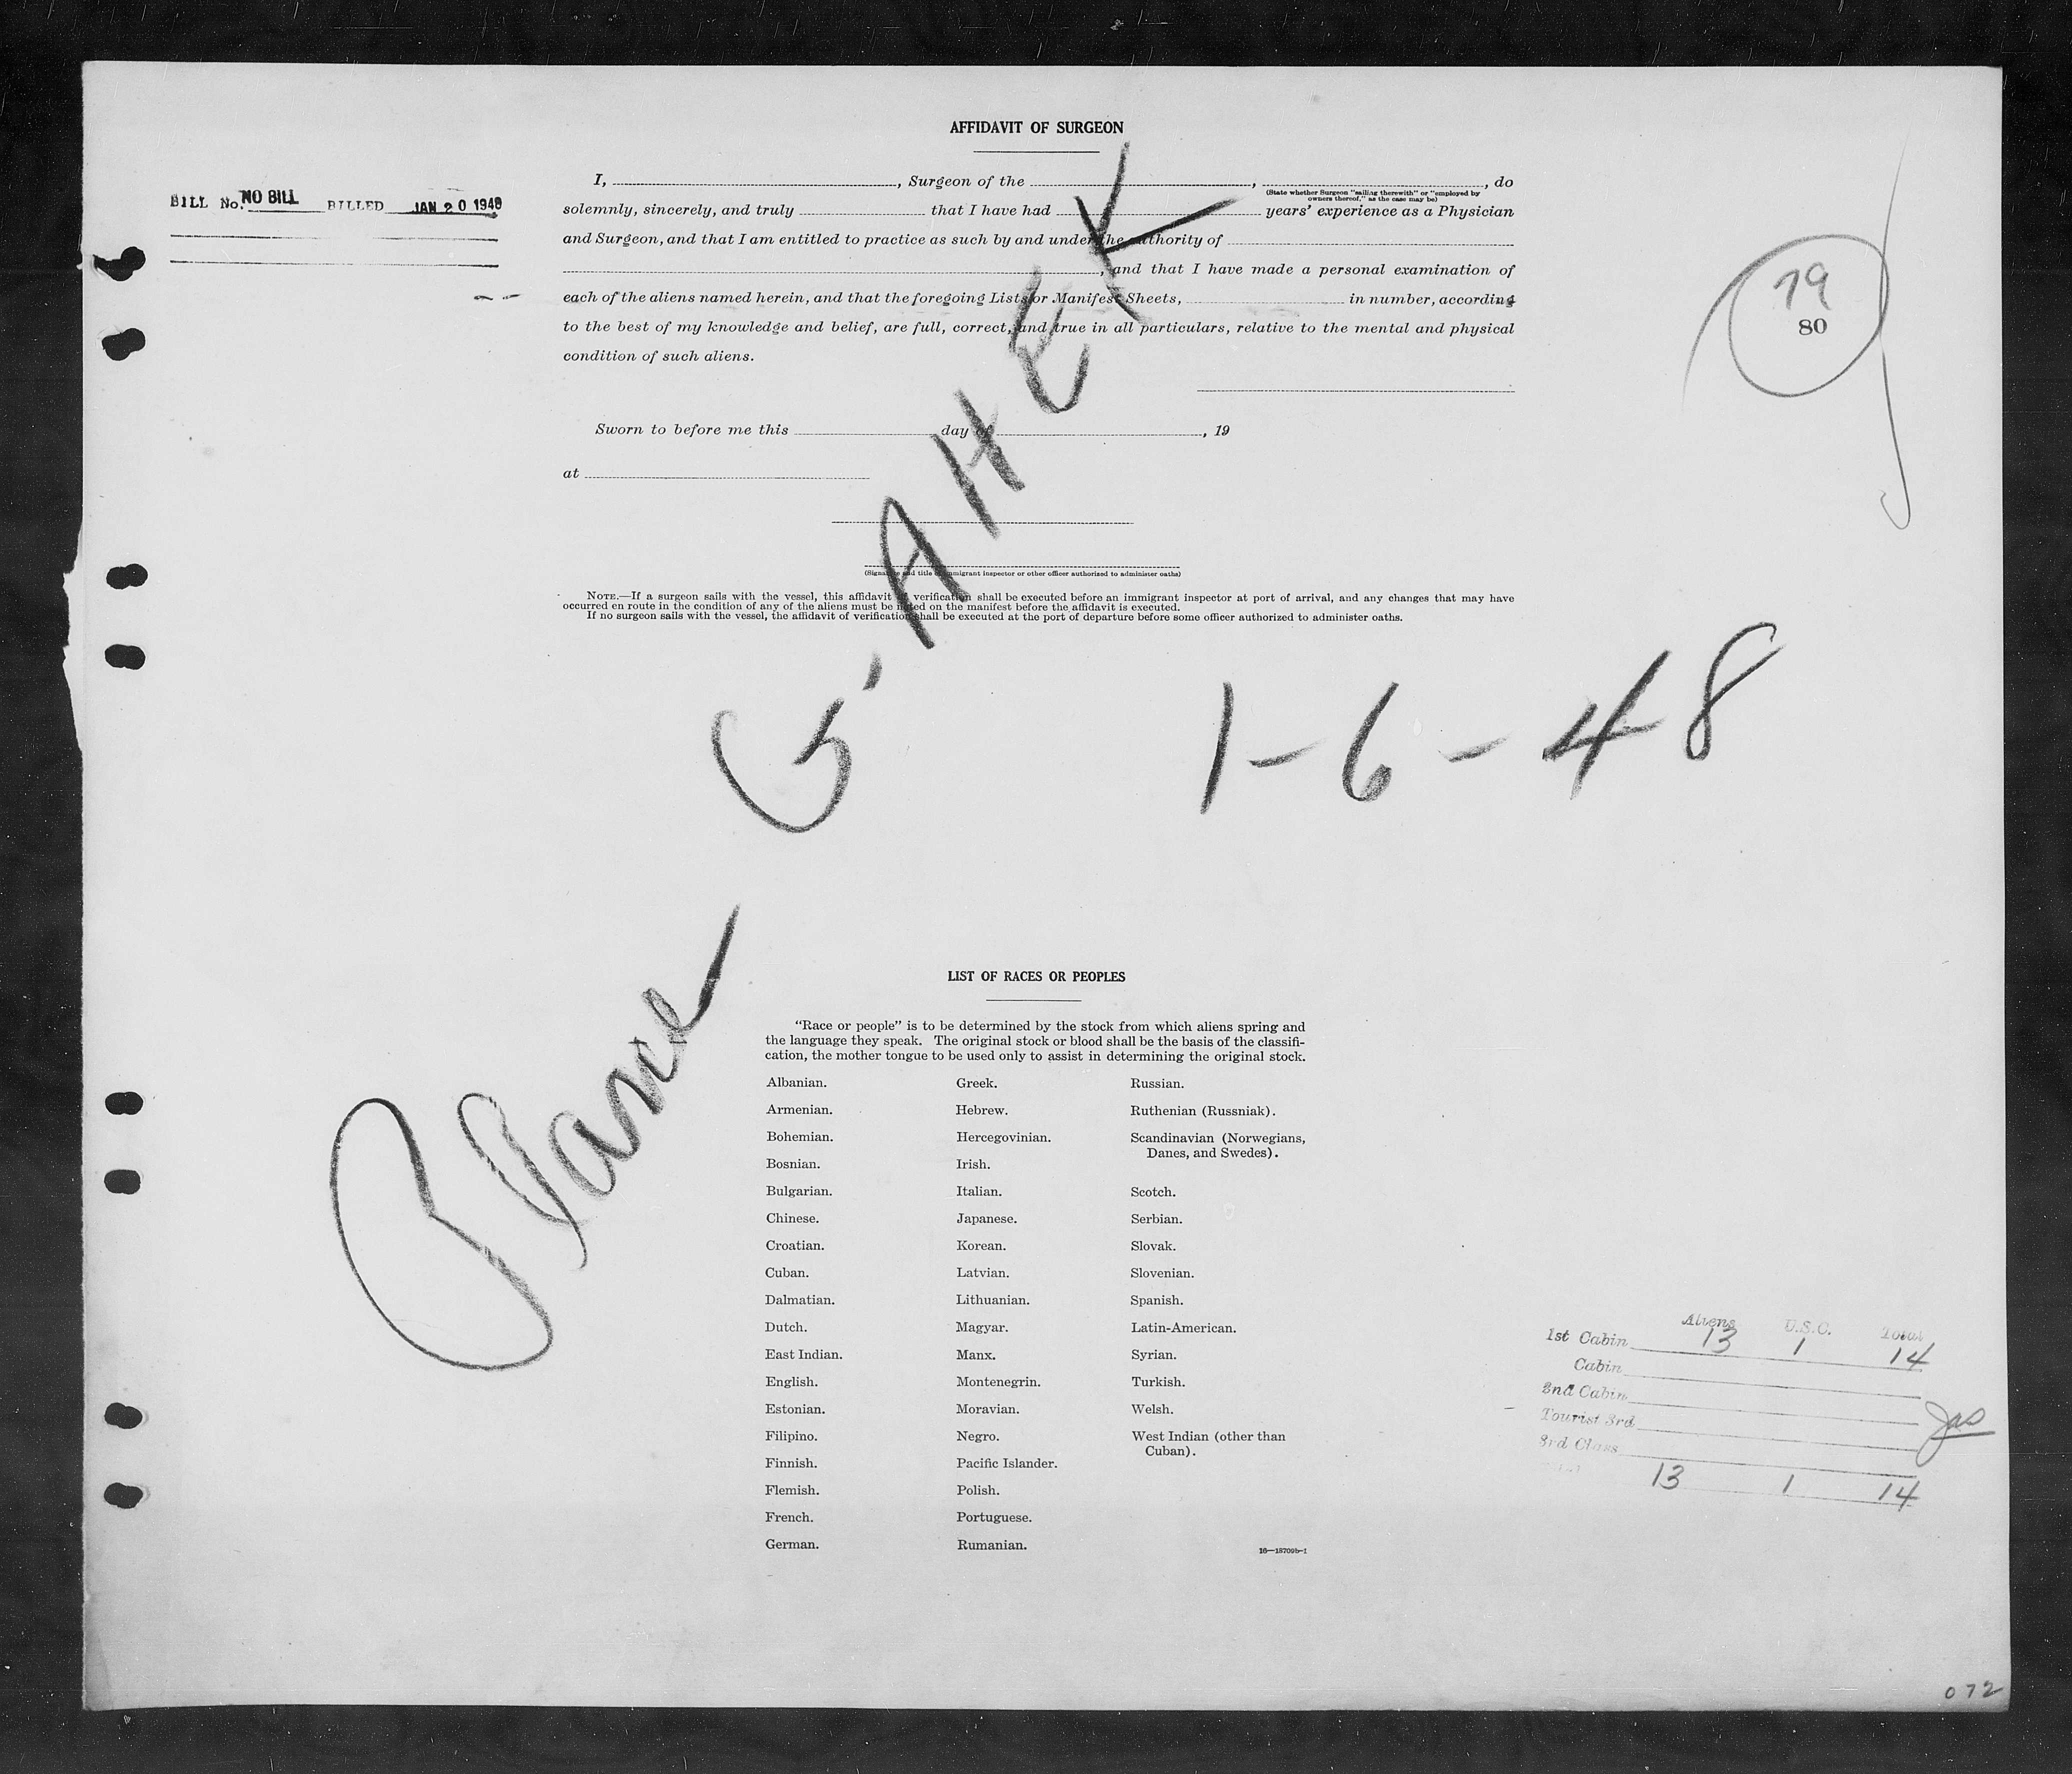 AFFIDAVIT OF SURGEON
BILL No. NO BILL BILLED JAN 20 1948
I, , Surgeon of the , , do
(State whether Surgeon "sailing therewith" or "employed by
owners thereof," as the case may be)
solemnly, sincerely, and truly that I have had years' experience as a Physician
and Surgeon, and that I am entitled to practice as such by and under the authority of
, and that I have made a personal examination of
each of the aliens named herein, and that the foregoing Lists or Manifest Sheets, in number, according
to the best of my knowledge and belief, are full, correct, and true in all particulars, relative to the mental and physical
condition of such aliens.
79
80
Sworn to before me this day of , 19
at
(Signature and title of immigrant inspector or other officer authorized to administer oaths)
NOTE.—If a surgeon sails with the vessel, this affidavit of verification shall be executed before an immigrant inspector at port of arrival, and any changes that may have
occurred en route in the condition of any of the aliens must be noted on the manifest before the affidavit is executed.
If no surgeon sails with the vessel, the affidavit of verification shall be executed at the port of departure before some officer authorized to administer oaths.
Plane G-AHEK
1-6-48
LIST OF RACES OR PEOPLES
"Race or people" is to be determined by the stock from which aliens spring and
the language they speak. The original stock or blood shall be the basis of the classifi-
cation, the mother tongue to be used only to assist in determining the original stock.
Albanian.
Armenian.
Bohemian.
Bosnian.
Bulgarian.
Chinese.
Croatian.
Cuban.
Dalmatian.
Dutch.
East Indian.
English.
Estonian.
Filipino.
Finnish.
Flemish.
French.
German.
Greek.
Hebrew.
Hercegovinian.
Irish.
Italian.
Japanese.
Korean.
Latvian.
Lithuanian.
Magyar.
Manx.
Montenegrin.
Moravian.
Negro.
Pacific Islander.
Polish.
Portuguese.
Rumanian.
Russian.
Ruthenian (Russniak).
Scandinavian (Norwegians,
Danes, and Swedes).
Scotch.
Serbian.
Slovak.
Slovenian.
Spanish.
Latin-American.
Syrian.
Turkish.
Welsh.
West Indian (other than
Cuban).
16—18709b-1
Aliens U.S.C. Total
1st Cabin 13 1 14
Cabin
2nd Cabin
Tourist 3rd
3rd Class
13 1 14
072